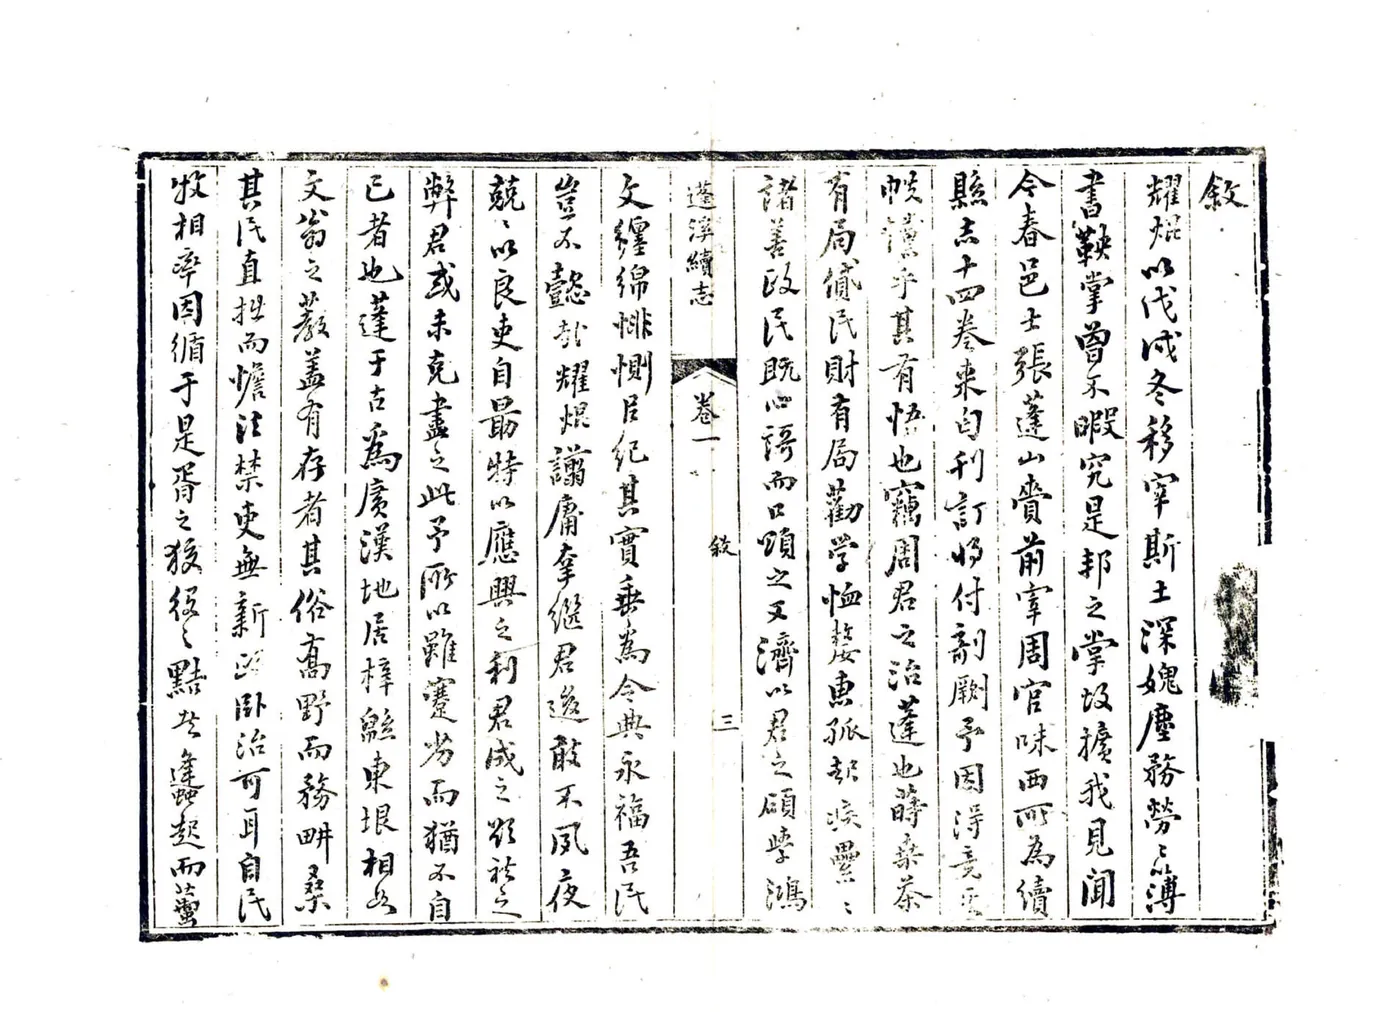 敘
耀焜以戊戌冬移宰斯土深媿塵務勞〻簿
書鞅掌曾不暇究是邦之掌故擴我見聞
今春邑士張蓬山賷前宰周官味西所為續
縣志十四卷来自刊訂將付剞劂予因得竟其
帙讀乎其有悟也竊周君之治蓬也蒔桑茶
有局儲民財有局勸学恤嫠惠孤起疾壘〻
諸善政民既心謌而口頌之又濟以君之碩學鴻
蓬溪續志
卷一
敘
三
文纏綿悱惻臣紀其實垂為令典永福吾民
豈不懿哉耀焜譾庸奉繼君後敢不夙夜
兢〻以良吏自勗特以應興之利君成之欵袪之
弊君或未克盡之此予所以雖蹇劣而猶不自
已者也蓬于古為廣漢地居梓緜東垠相如
文翁之教盖有存者其俗髙野而務畊桑
其民直拙而憺法禁吏無新政卧治可耳自民
牧相率因循于是胥之狡役之黠者蠭起而蠆